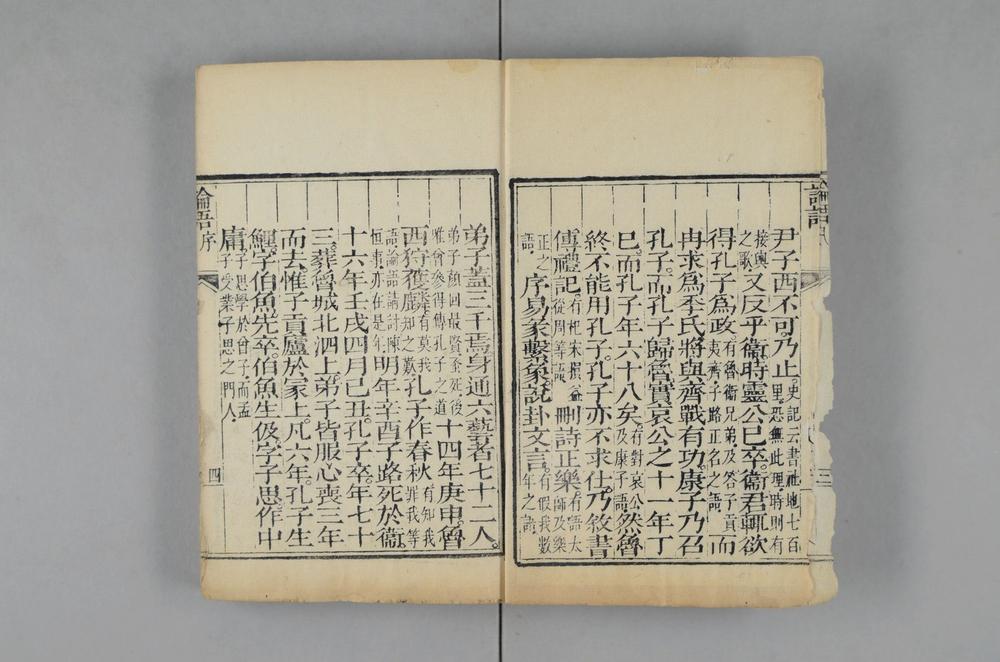 論語
尹子西不可。乃止。史記云書社地七百里。恐無此理。時則有
接輿之歌。又反乎衛。時靈公已卒。衛君輒欲
得孔子爲政。有魯衛兄弟。及答子貢夷齊。子路正名之語。而
冉求爲季氏將。與齊戰有功。康子乃召
孔子。而孔子歸魯。實哀公之十一年丁
巳。而孔子年六十八矣。有對哀公及康子語。然魯
終不能用孔子。孔子亦不求仕。乃敘書
傳禮記。有杞宋損益從周等語。刪詩正樂。有語太師及樂
正之語。序易彖繫象說卦文言。有假我數年之語。
三
弟子蓋三千焉。身通六藝者七十二人。
弟子顏回最賢。蚤死。後惟曾參得傳孔子之道。十四年庚申。魯
西狩獲麟。有莫我知之歎。孔子作春秋。有知我罪我等
語。論語請討陳恒事。亦在是年。明年辛酉。子路死於衛。
十六年壬戌。四月己丑。孔子卒。年七十
三。葬魯城北泗上。弟子皆服心喪三年
而去。惟子貢廬於冢上。凡六年。孔子生
鯉。字伯魚。先卒。伯魚生伋。字子思。作中
庸。子思學於曾子。而孟子受業子思之門人。
論語序
四